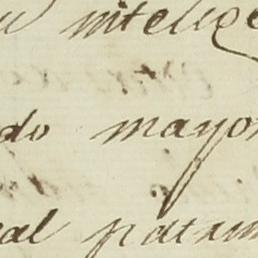 intelige
do mayor
al patrim